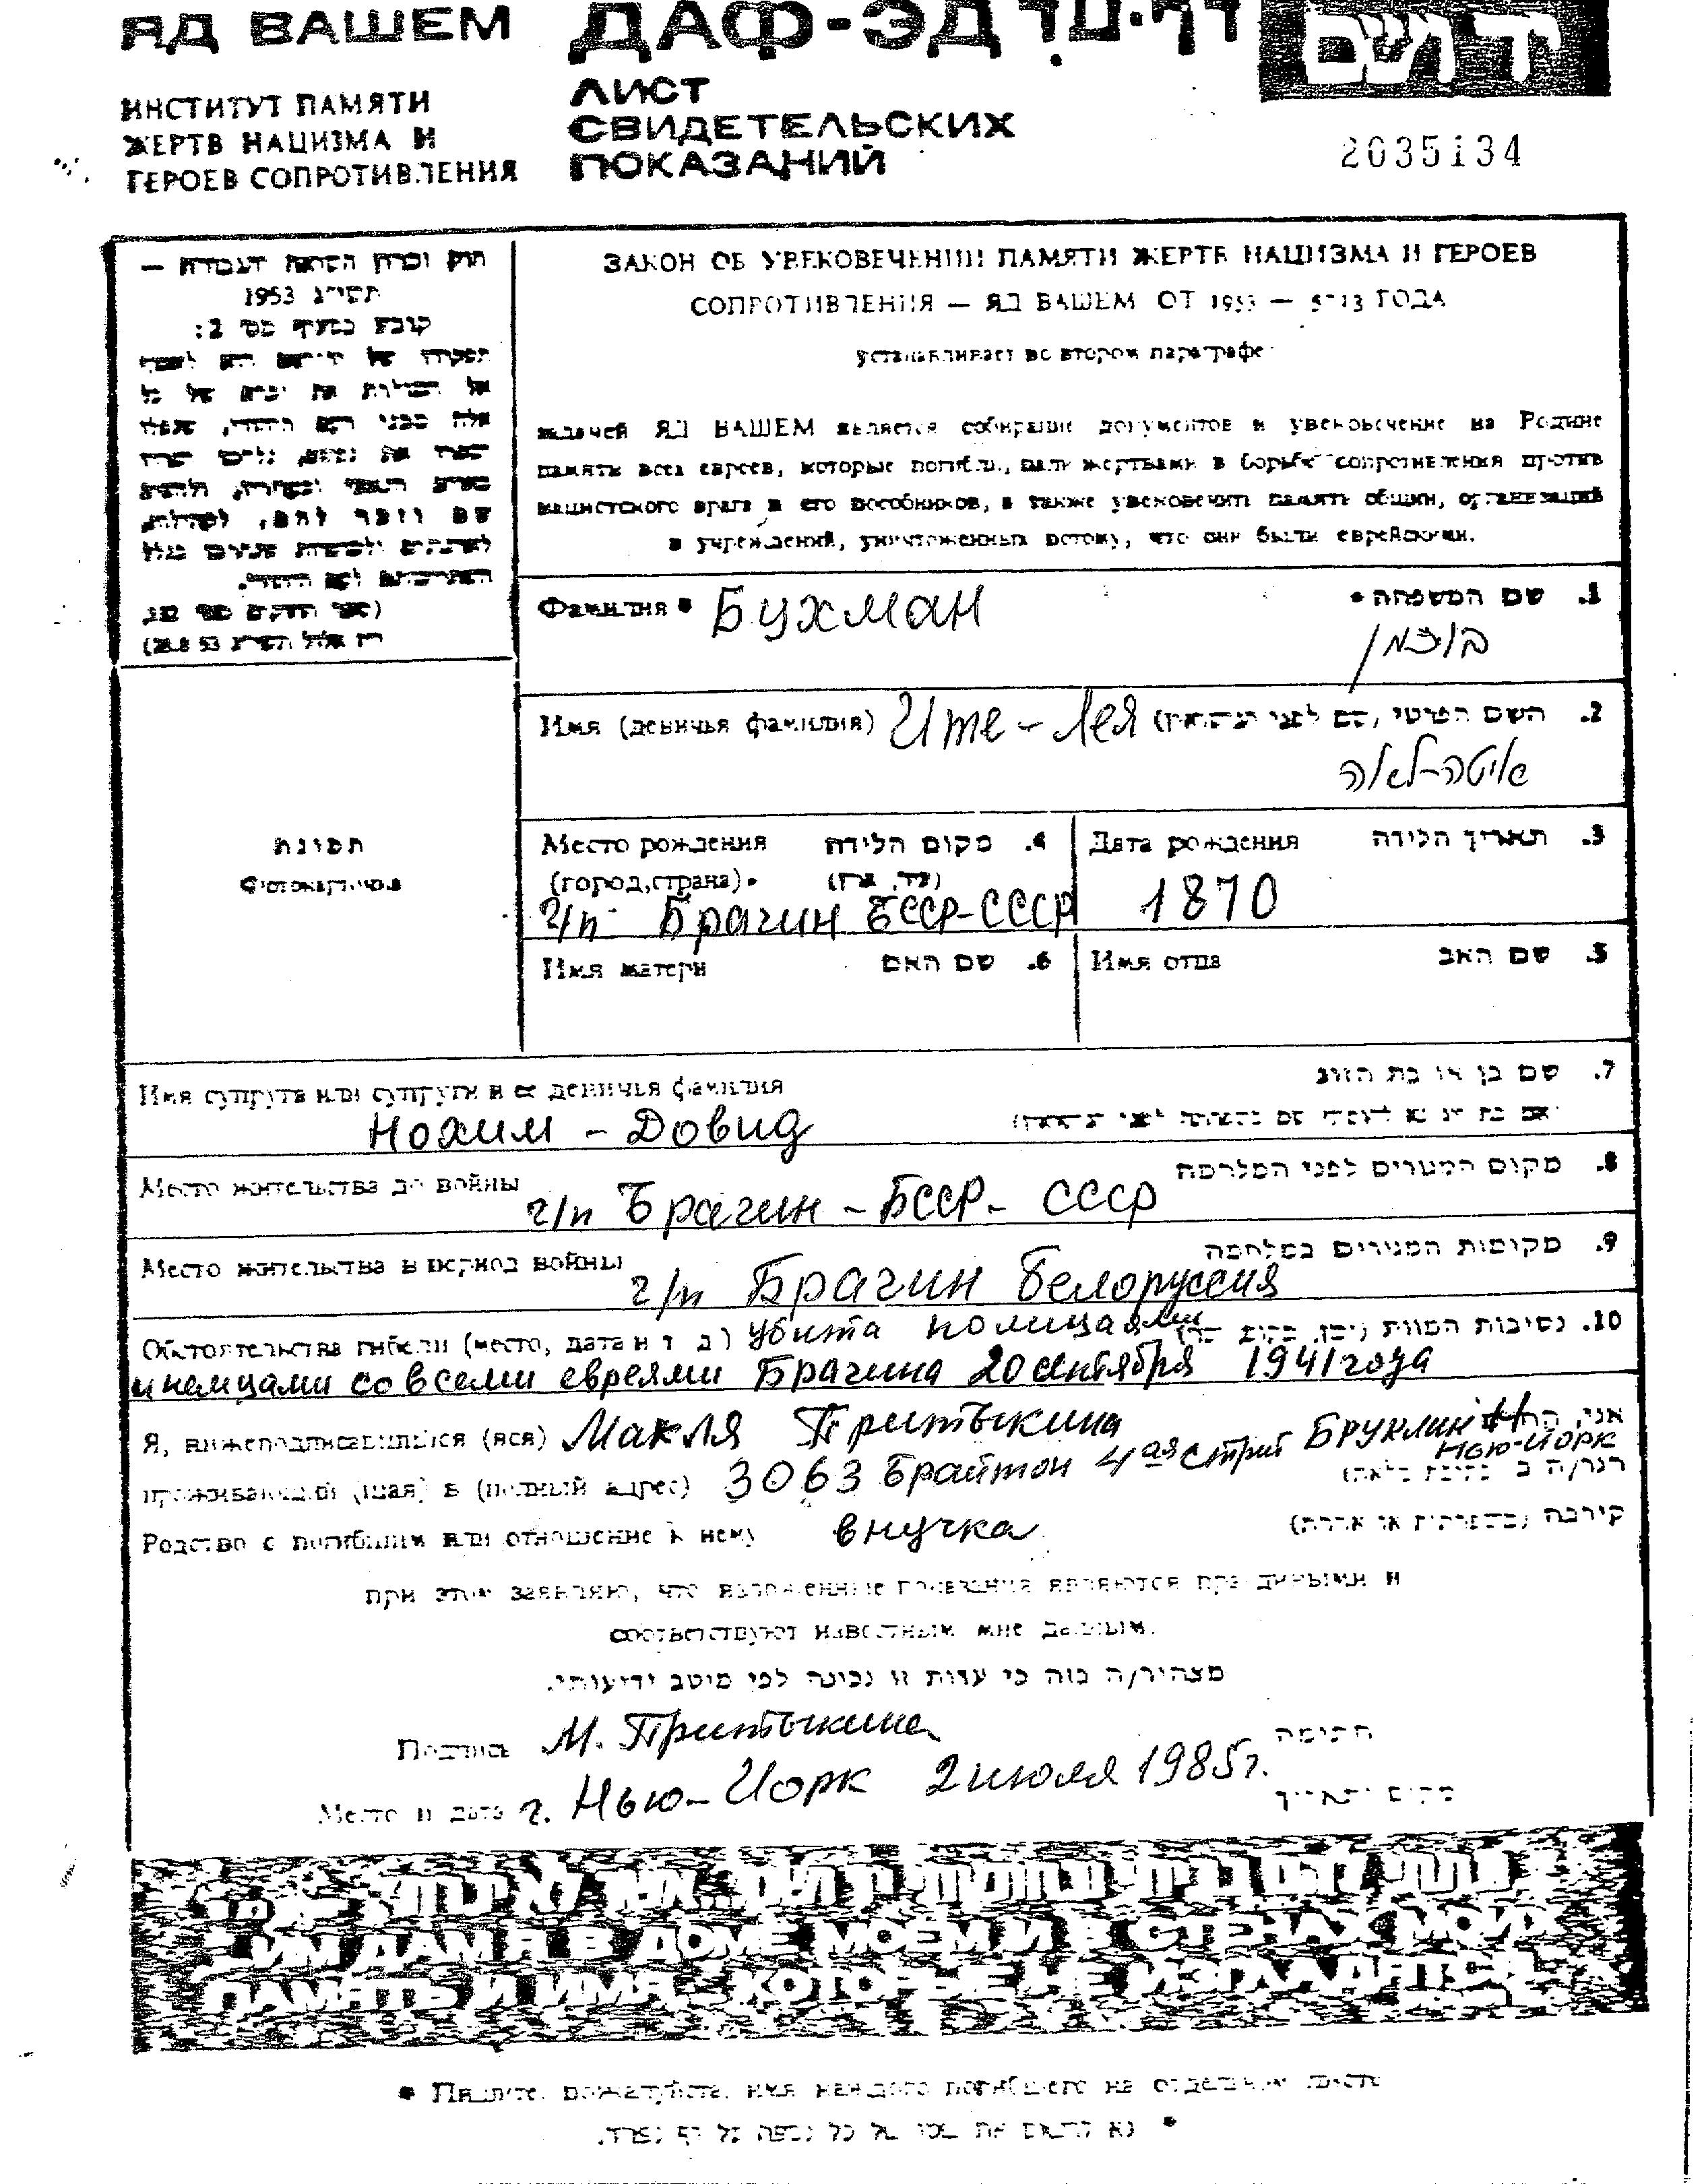 ЯД ВАШЕМ
ДАФ-ЭД דף-עד
יד ושם
ИНСТИТУТ ПАМЯТИ
ЖЕРТВ НАЦИЗМА И
ГЕРОЕВ СОПРОТИВЛЕНИЯ
ЛИСТ
СВИДЕТЕЛЬСКИХ
ПОКАЗАНИЙ
2035134
חוק זכרון השואה והגבורה —
תשי"ג 1953
קובע בסעיף מס' 2:
ЗАКОН ОБ УВЕКОВЕЧЕНИИ ПАМЯТИ ЖЕРТВ НАЦИЗМА И ГЕРОЕВ
СОПРОТИВЛЕНИЯ — ЯД ВАШЕМ ОТ 1953 — 5713 ГОДА
устанавливает во втором параграфе
задачей ЯД ВАШЕМ является собирание документов и увековечение на Родине
память всех евреев, которые погибли, пали жертвами в борьбе сопротивления против
нацистского врага и его пособников, а также увековечить память общин, организаций
и учреждений, уничтоженных потому, что они были еврейскими.
Фамилия • Бухман
שם המשפחה • .1
בוכמן
Имя (девичья фамилия) Ите - Лея
השם הפרטי (שם לפני הנישואין) .2
איטה-לאה
Место рождения מקום הלידה .4
(город, страна) •
г/п Брагин БССР-СССР
Дата рождения תאריך הלידה .3
1870
Имя матери שם האם .6
Имя отца שם האב .5
Имя супруга или супруги и ее девичья фамилия
שם בן או בת הזוג .7
Нохим - Довид
Место жительства до войны
מקום המגורים לפני המלחמה .8
г/п Брагин - БССР - СССР
Место жительства в период войны
מקומות המגורים במלחמה .9
г/п Брагин Белоруссия
Обстоятельства гибели (место, дата и т д ) убита полицаями
נסיבות המוות .10
и немцами со всеми евреями Брагина 20 сентября 1941 года
Я, нижеподписавшийся (аяся) Макля Притыкина
проживающий (щая) в (полный адрес) 3063 Брайтон 4ая стрит Бруклин Нью-Йорк
Родство с погибшим или отношение к нему внучка
קירבה (משפחתית או אחרת)
при этом заявляю, что изложенные показания являются правдивыми и
соответствуют известным мне данным.
מצהיר/ה בזה כי עדות זו נכונה לפי מיטב ידיעותי.
Подпись М. Притыкина חתימה
Место и дата г. Нью-Йорк 2 июля 1985 г. מקום ותאריך
ИМ ДАМ Я В ДОМЕ МОЕМ И В СТЕНАХ МОИХ
ПАМЯТЬ И ИМЯ, КОТОРЫЕ НЕ ИЗГЛАДЯТСЯ
• Пишите, пожалуйста, имя каждого погибшего на отдельном листе